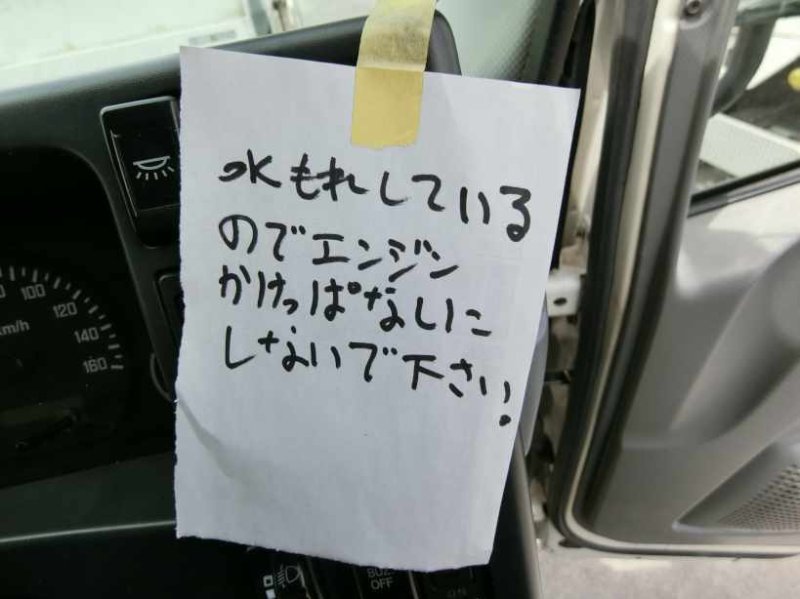 水もれしている
のでエンジン
かけっぱなしに
しないで下さい!
100
120
140
160
km/h
BUZ
OFF